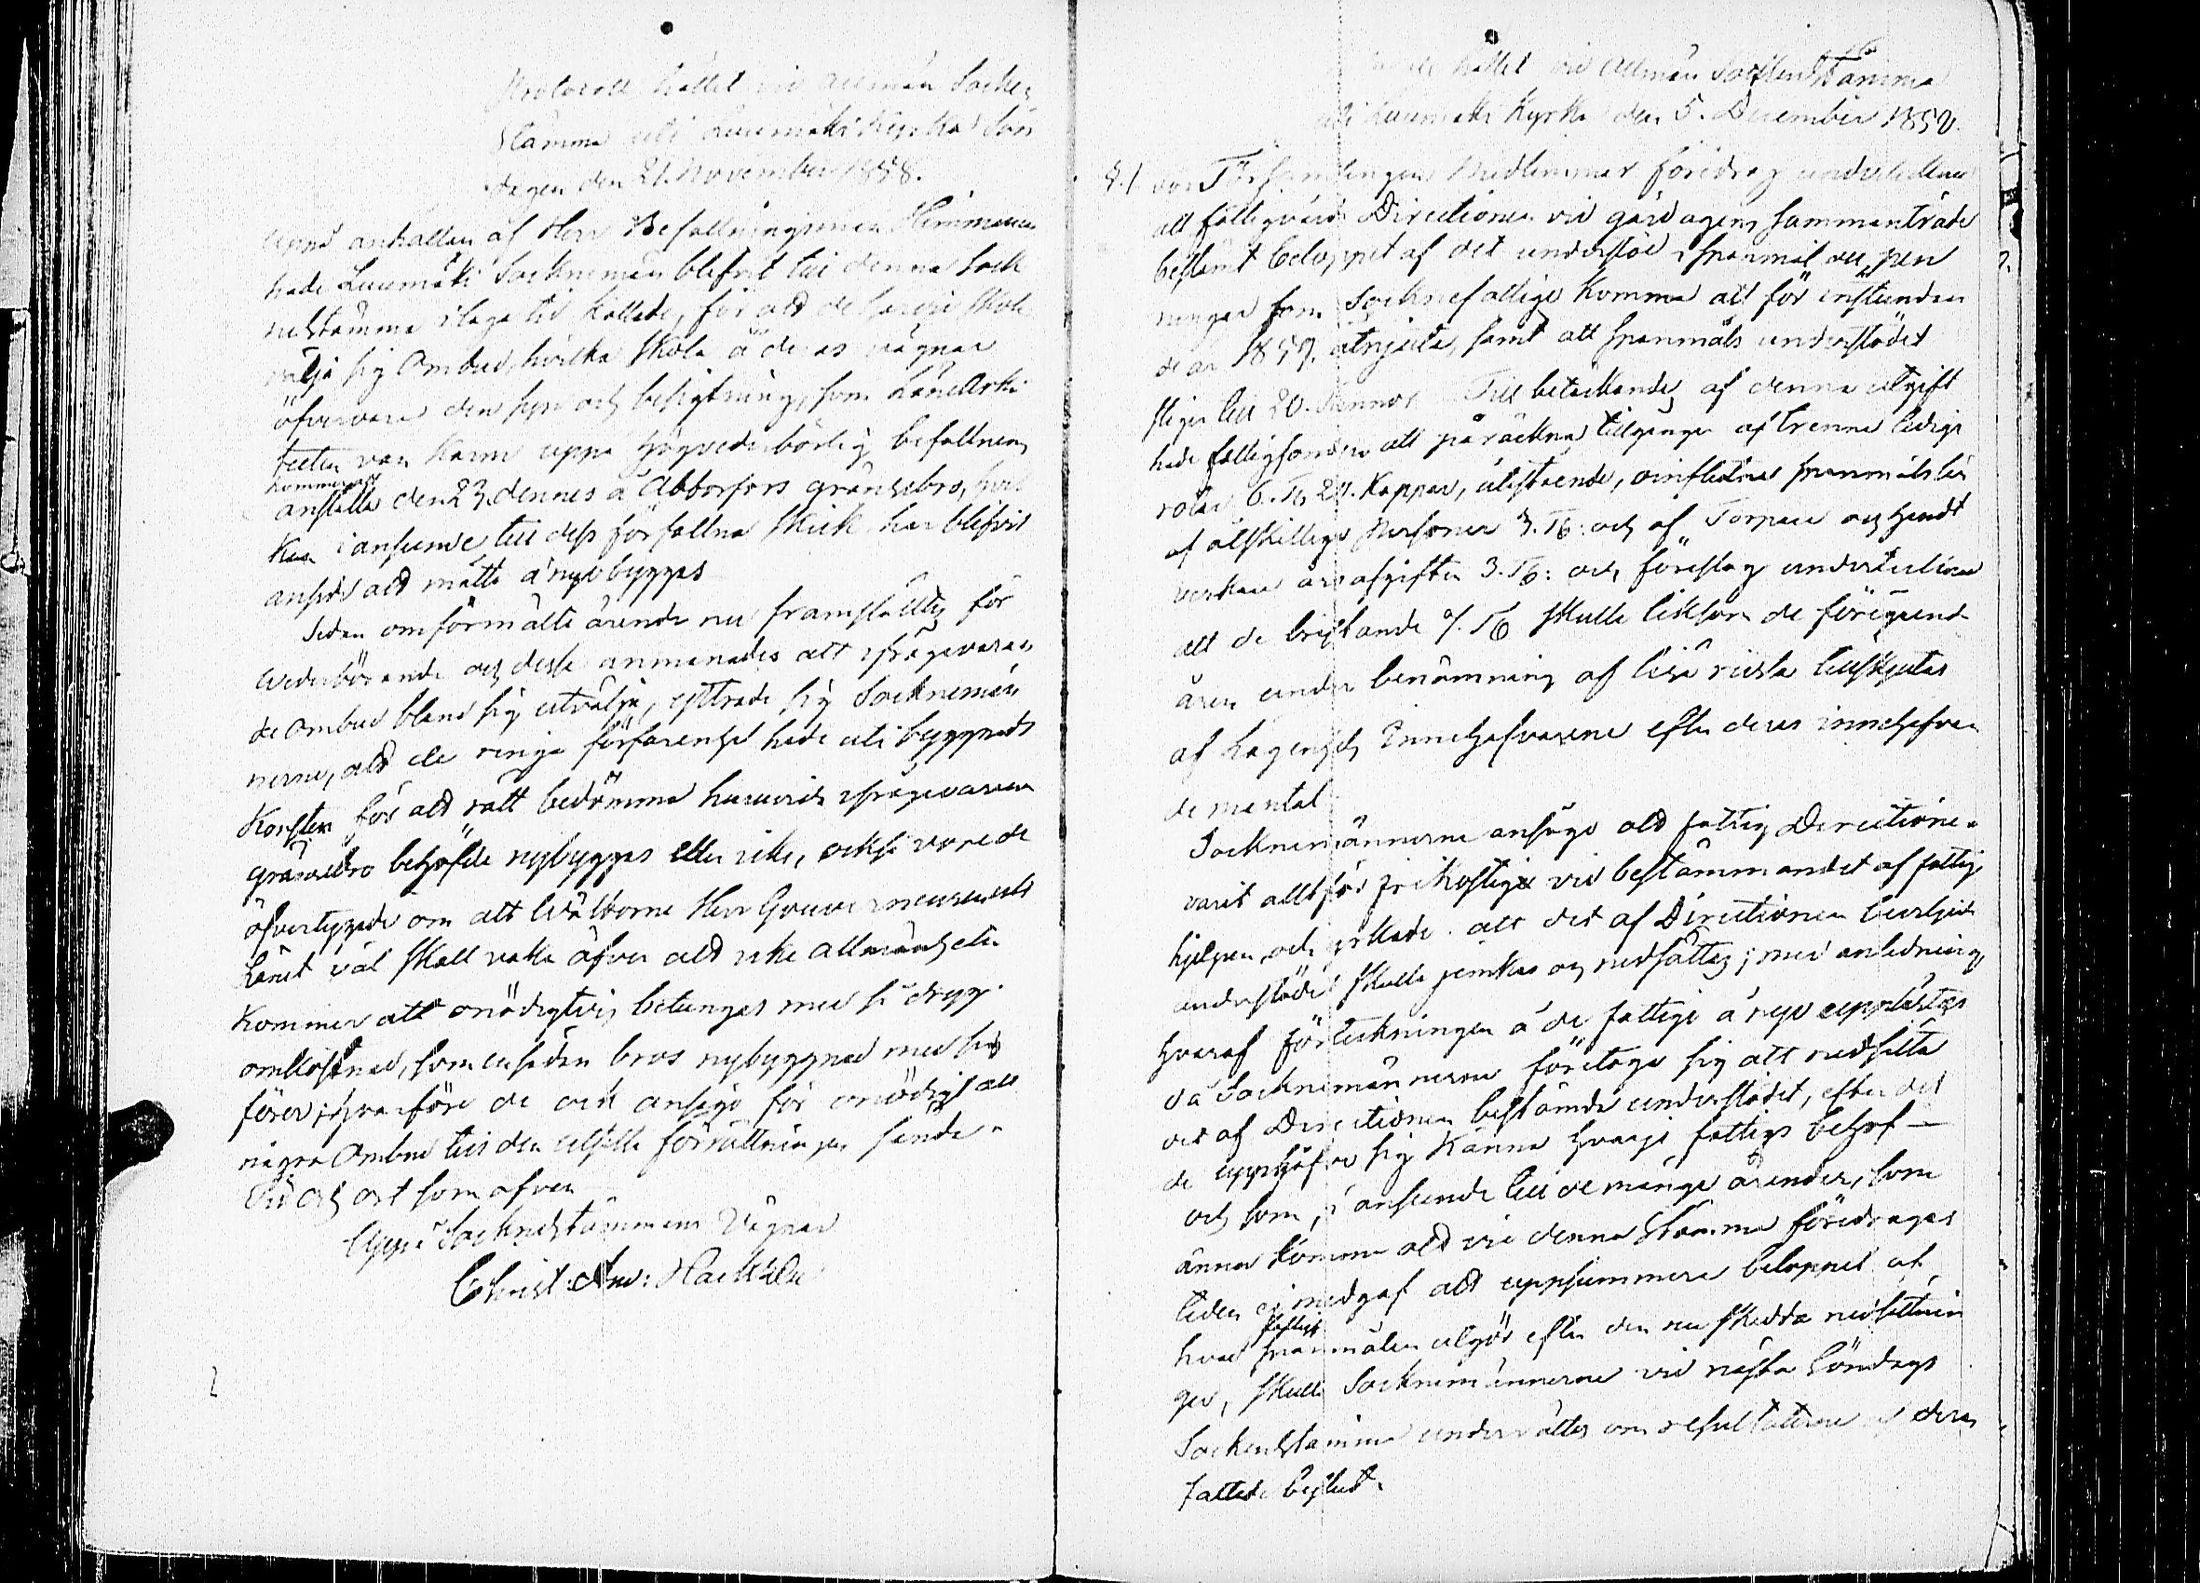 Protocoll hållet vid allmän Socken
stämma uti Luumäki Kyrka Sön
dagen den 21. November 1858.
Uppå anhållan af Herr Befallningsman
hade Luumäki Sockneman blifvit till denna Sock
nestämma i laga tid kallade, för att de skola
välja sig Ombud, hvilka skola å deras vägnar
öfvervara den syn och besigtning, som Länearki
tecten von uppå högvederbörlig befallning
kommer att
anställa den 23. dennes å Abborfors gränsebro, som
i anseende till dess förfallna skick har blifvit
ansedd att måtta å nyo byggas
Sedan omförmälte ärende nu framställts för
wederbörande och desse anmanades att ifrågavaran
de Ombud bland sig utvälja, yttrade sig Socknemän
nerne, att de ringa förfarenhet hade uti byggnads
Konsten för att rätt bedömma huruvida ifrågavarande
gränsebro behöfde nybyggas eller icke, också vore de
öfvertygade om att Wälborne Herr Gouverneuren uti
Länet väl skall vaka öfver att icke allmänheten
kommer att onödigtvis betungas med så dryg
omkostnad, som en sådan bros nybyggnad med sig
förer; hvarföre de ock ansågo för onödigt att
några Ombud till den utsatta förrättningen sända.
Tid och ort som ofvan
Uppå Socknestämmans Vägnar
Christ: And:
hållet vid Allmän Sockenstämma
uti Luumäki Kyrka den 5. December 1858.
§.1 För Församlingens Medlemmar föredrogs underrättelsen
att fattigvårds Directionen vid gårdagens sammanträde
bestämt beloppet af det understöd i spanmål och pen
ningar som Socknefattige komma att för instundan
de år 1859. åtnjuta, samt att spanmåls understödet
stiger till 20. Tunnor. Till betäckande af denna utgift
hade fattigfonden att påräkna tillgångar af trenne lediga
rotar 6. T. 24. Kappar, utestående, oinflutne spanmåls lån
af åtskillige Personer T. och af Torpare och handt
verkare årsafgifter 3. T. och föreslog
att de bristande T. skulle liksom de föregående
åren under benämning af tillskjutas
af Lägenhets Innehafvarene efter deras innehafvan
de mantal.
Socknemännerne ansågo att fattig Directionen
varit alltför frikostig vid bestämmandet af fattig
hjelpen, och yrkade att det af Directionen beviljade
understödet skulle jemkas och nedsättas; med anledning
hvaraf förteckningen å de fattige å nyo upplästes
då Socknemännerne företogo sig att nedsätta
det af Directionen bestämda understödet, efter det
de uppgåfvo sig känna hvarje fattigs behof
och som, i anseende till de många ärender, som
ännu komma att vid denna Stämma föredragas
tiden ej medgaf att uppsummera beloppet af
hvad spanmålen utgör efter den nu skedda nedsättnin
gen, skulle Socknemännerne vid nästa Söndags
Sockenstämma underrättas om resultaterne af deras
fattade beslut.